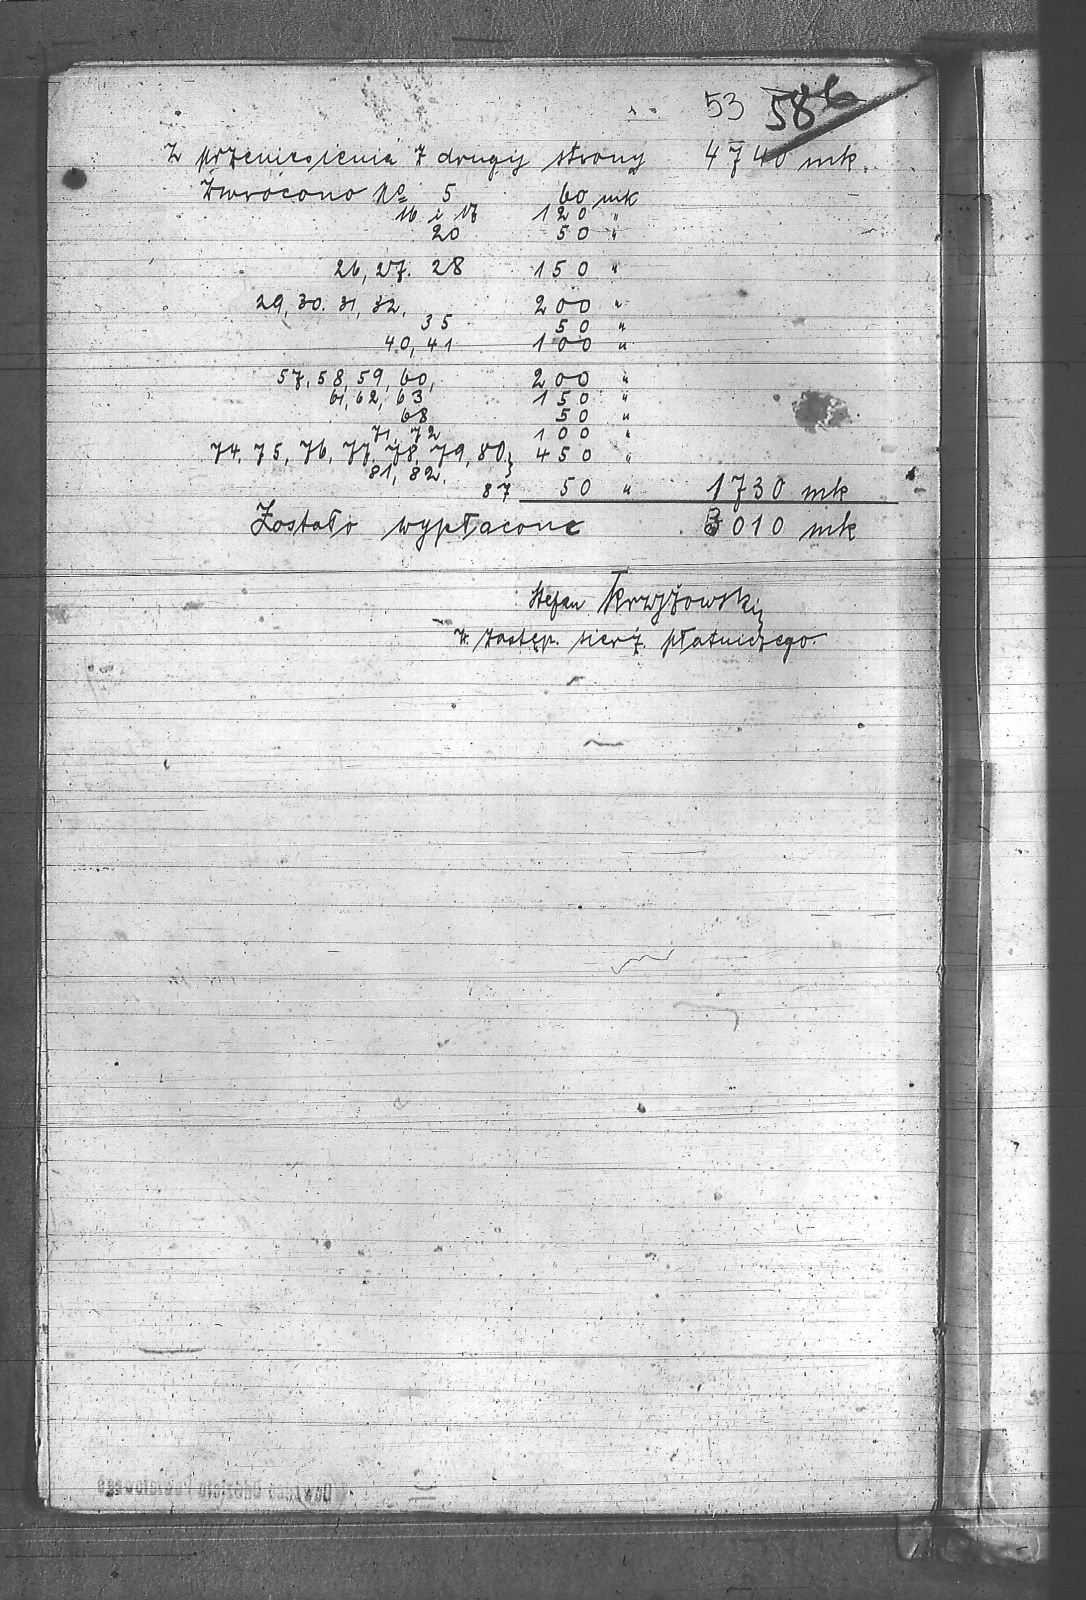 53 58b
Z przeniesienia z drugij strony 4740 mk.
Zwrócono No 5 60 mk
16 i 17 120 "
20 50 "
26, 27. 28 150 "
29, 30. 31, 32, 200 "
35 50 "
40, 41 100 "
57, 58, 59, 60, 200 "
61, 62, 63 150 "
68 50 "
71, 72 100 "
74, 75, 76, 77, 78, 79, 80, 450 "
81, 82.
87 50 " 1730 mk
Zostało wypłacone 3010 mk
Stefan Krzyżowski
w zastęp. sierż. płatniczego.